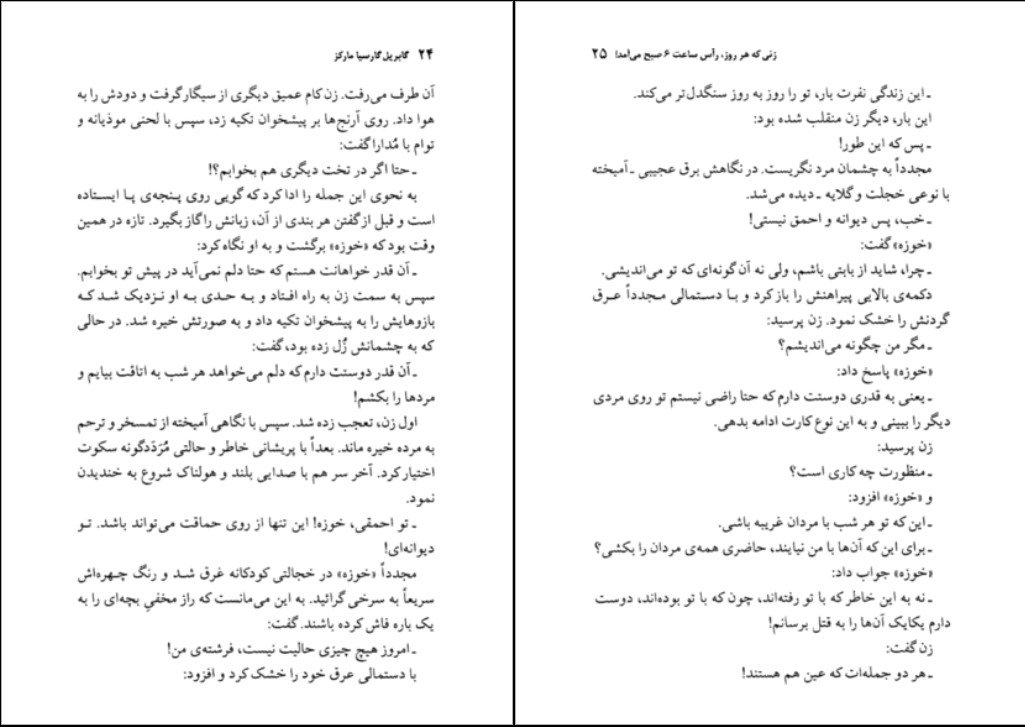 ۲۴ گابریل گارسیا مارکز
آن طرف می‌رفت. زن کام عمیق دیگری از سیگار گرفت و دودش را به
هوا داد. روی آرنج‌ها بر پیشخوان تکیه زد، سپس با لحنی موذیانه و
توام با مُدارا گفت:
ـ حتا اگر در تخت دیگری هم بخوابم؟!
به نحوی این جمله را ادا کرد که گویی روی پنجه‌ی پا ایستاده
است و قبل از گفتن هر بندی از آن، زبانش را گاز بگیرد. تازه در همین
وقت بود که «خوزه» برگشت و به او نگاه کرد:
ـ آن قدر خواهانت هستم که حتا دلم نمی‌آید در پیش تو بخوابم.
سپس به سمت زن به راه افتاد و به حدی به او نزدیک شد که
بازوهایش را به پیشخوان تکیه داد و به صورتش خیره شد. در حالی
که به چشمانش زُل زده بود، گفت:
ـ آن قدر دوستت دارم که دلم می‌خواهد هر شب به اتاقت بیایم و
مردها را بکشم!
اول زن، تعجب زده شد. سپس با نگاهی آمیخته از تمسخر و ترحم
به مرده خیره ماند. بعداً با پریشانی خاطر و حالتی مُرَدّدگونه سکوت
اختیار کرد. آخر سر هم با صدایی بلند و هولناک شروع به خندیدن
نمود.
ـ تو احمقی، خوزه! این تنها از روی حماقت می‌تواند باشد. تو
دیوانه‌ای!
مجدداً «خوزه» در خجالتی کودکانه غرق شد و رنگ چهره‌اش
سریعاً به سرخی گرائید. به این می‌مانست که راز مخفیِ بچه‌ای را به
یک باره فاش کرده باشند. گفت:
ـ امروز هیچ چیزی حالیت نیست، فرشته‌ی من!
با دستمالی عرق خود را خشک کرد و افزود:
زنی که هر روز، رأس ساعت ۶ صبح می‌آمد! ۲۵
ـ این زندگی نفرت بار، تو را روز به روز سنگدل‌تر می‌کند.
این بار، دیگر زن منقلب شده بود:
ـ پس که این طور!
مجدداً به چشمان مرد نگریست. در نگاهش برق عجیبی ـ آمیخته
با نوعی خجلت و گلایه ـ دیده می‌شد.
ـ خب، پس دیوانه و احمق نیستی!
«خوزه» گفت:
ـ چرا، شاید از بابتی باشم، ولی نه آن گونه‌ای که تو می‌اندیشی.
دکمه‌ی بالایی پیراهنش را باز کرد و با دستمالی مجدداً عرق
گردنش را خشک نمود. زن پرسید:
ـ مگر من چگونه می‌اندیشم؟
«خوزه» پاسخ داد:
ـ یعنی به قدری دوستت دارم که حتا راضی نیستم تو روی مردی
دیگر را ببینی و به این نوع کارت ادامه بدهی.
زن پرسید:
ـ منظورت چه کاری است؟
و «خوزه» افزود:
ـ این که تو هر شب با مردان غریبه باشی.
ـ برای این که آن‌ها با من نیایند، حاضری همه‌ی مردان را بکشی؟
«خوزه» جواب داد:
ـ نه به این خاطر که با تو رفته‌اند، چون که با تو بوده‌اند، دوست
دارم یکایک آن‌ها را به قتل برسانم!
زن گفت:
ـ هر دو جمله‌ات که عین هم هستند!